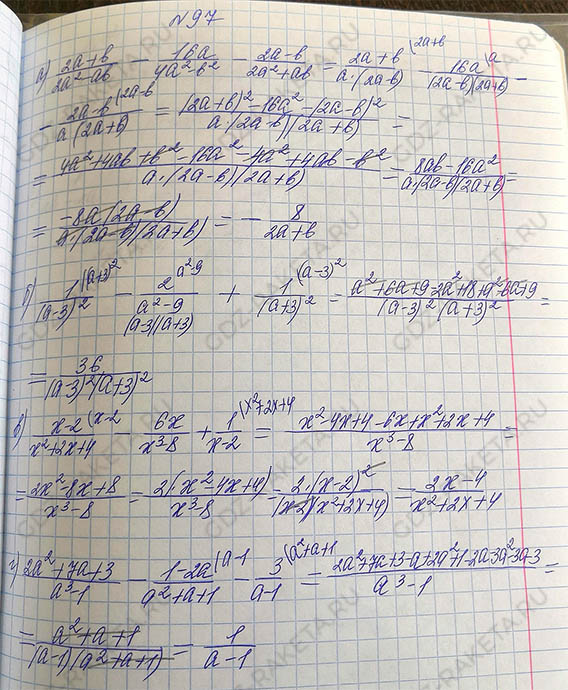 №97
а) (2a+b)/(2a²-ab) - 16a/(4a²-b²) - (2a-b)/(2a²+ab) = (2a+b)/(a·(2a-b)) (2a+b - 16a/((2a-b)(2a+b)) (a -
- (2a-b)/(a·(2a+b)) (2a-b = ((2a+b)²-16a²-(2a-b)²)/(a·(2a-b)(2a+b)) =
= (4a²+4ab+b²-16a²-4a²+4ab-b²)/(a·(2a-b)(2a+b)) = (8ab-16a²)/(a·(2a-b)(2a+b)) =
= (-8a·(2a-b))/(a·(2a-b)(2a+b)) = - 8/(2a+b)
б) 1/(a-3)² (a+3)² - 2/(a²-9) a²-9 + 1/(a+3)² (a-3)² = (a²+6a+9-2a²+18+a²-6a+9)/((a-3)²·(a+3)²) =
(a-3)(a+3)
= 36/((a-3)²(a+3)²)
в) (x-2)/(x²+2x+4) (x-2 - 6x/(x³-8) + 1/(x-2) (x²+2x+4 = (x²-4x+4-6x+x²+2x+4)/(x³-8) =
= (2x²-8x+8)/(x³-8) = 2(x²-4x+4)/(x³-8) = 2·(x-2)²/((x-2)(x²+2x+4)) = (2x-4)/(x²+2x+4)
г) (2a²+7a+3)/(a³-1) - (1-2a)/(a²+a+1) (a-1 - 3/(a-1) (a²+a+1 = (2a²+7a+3-a+2a²+1-2a-3a²-3a-3)/(a³-1) =
= (a²+a+1)/((a-1)(a²+a+1)) = 1/(a-1)
GDZ-RAKETA.RU